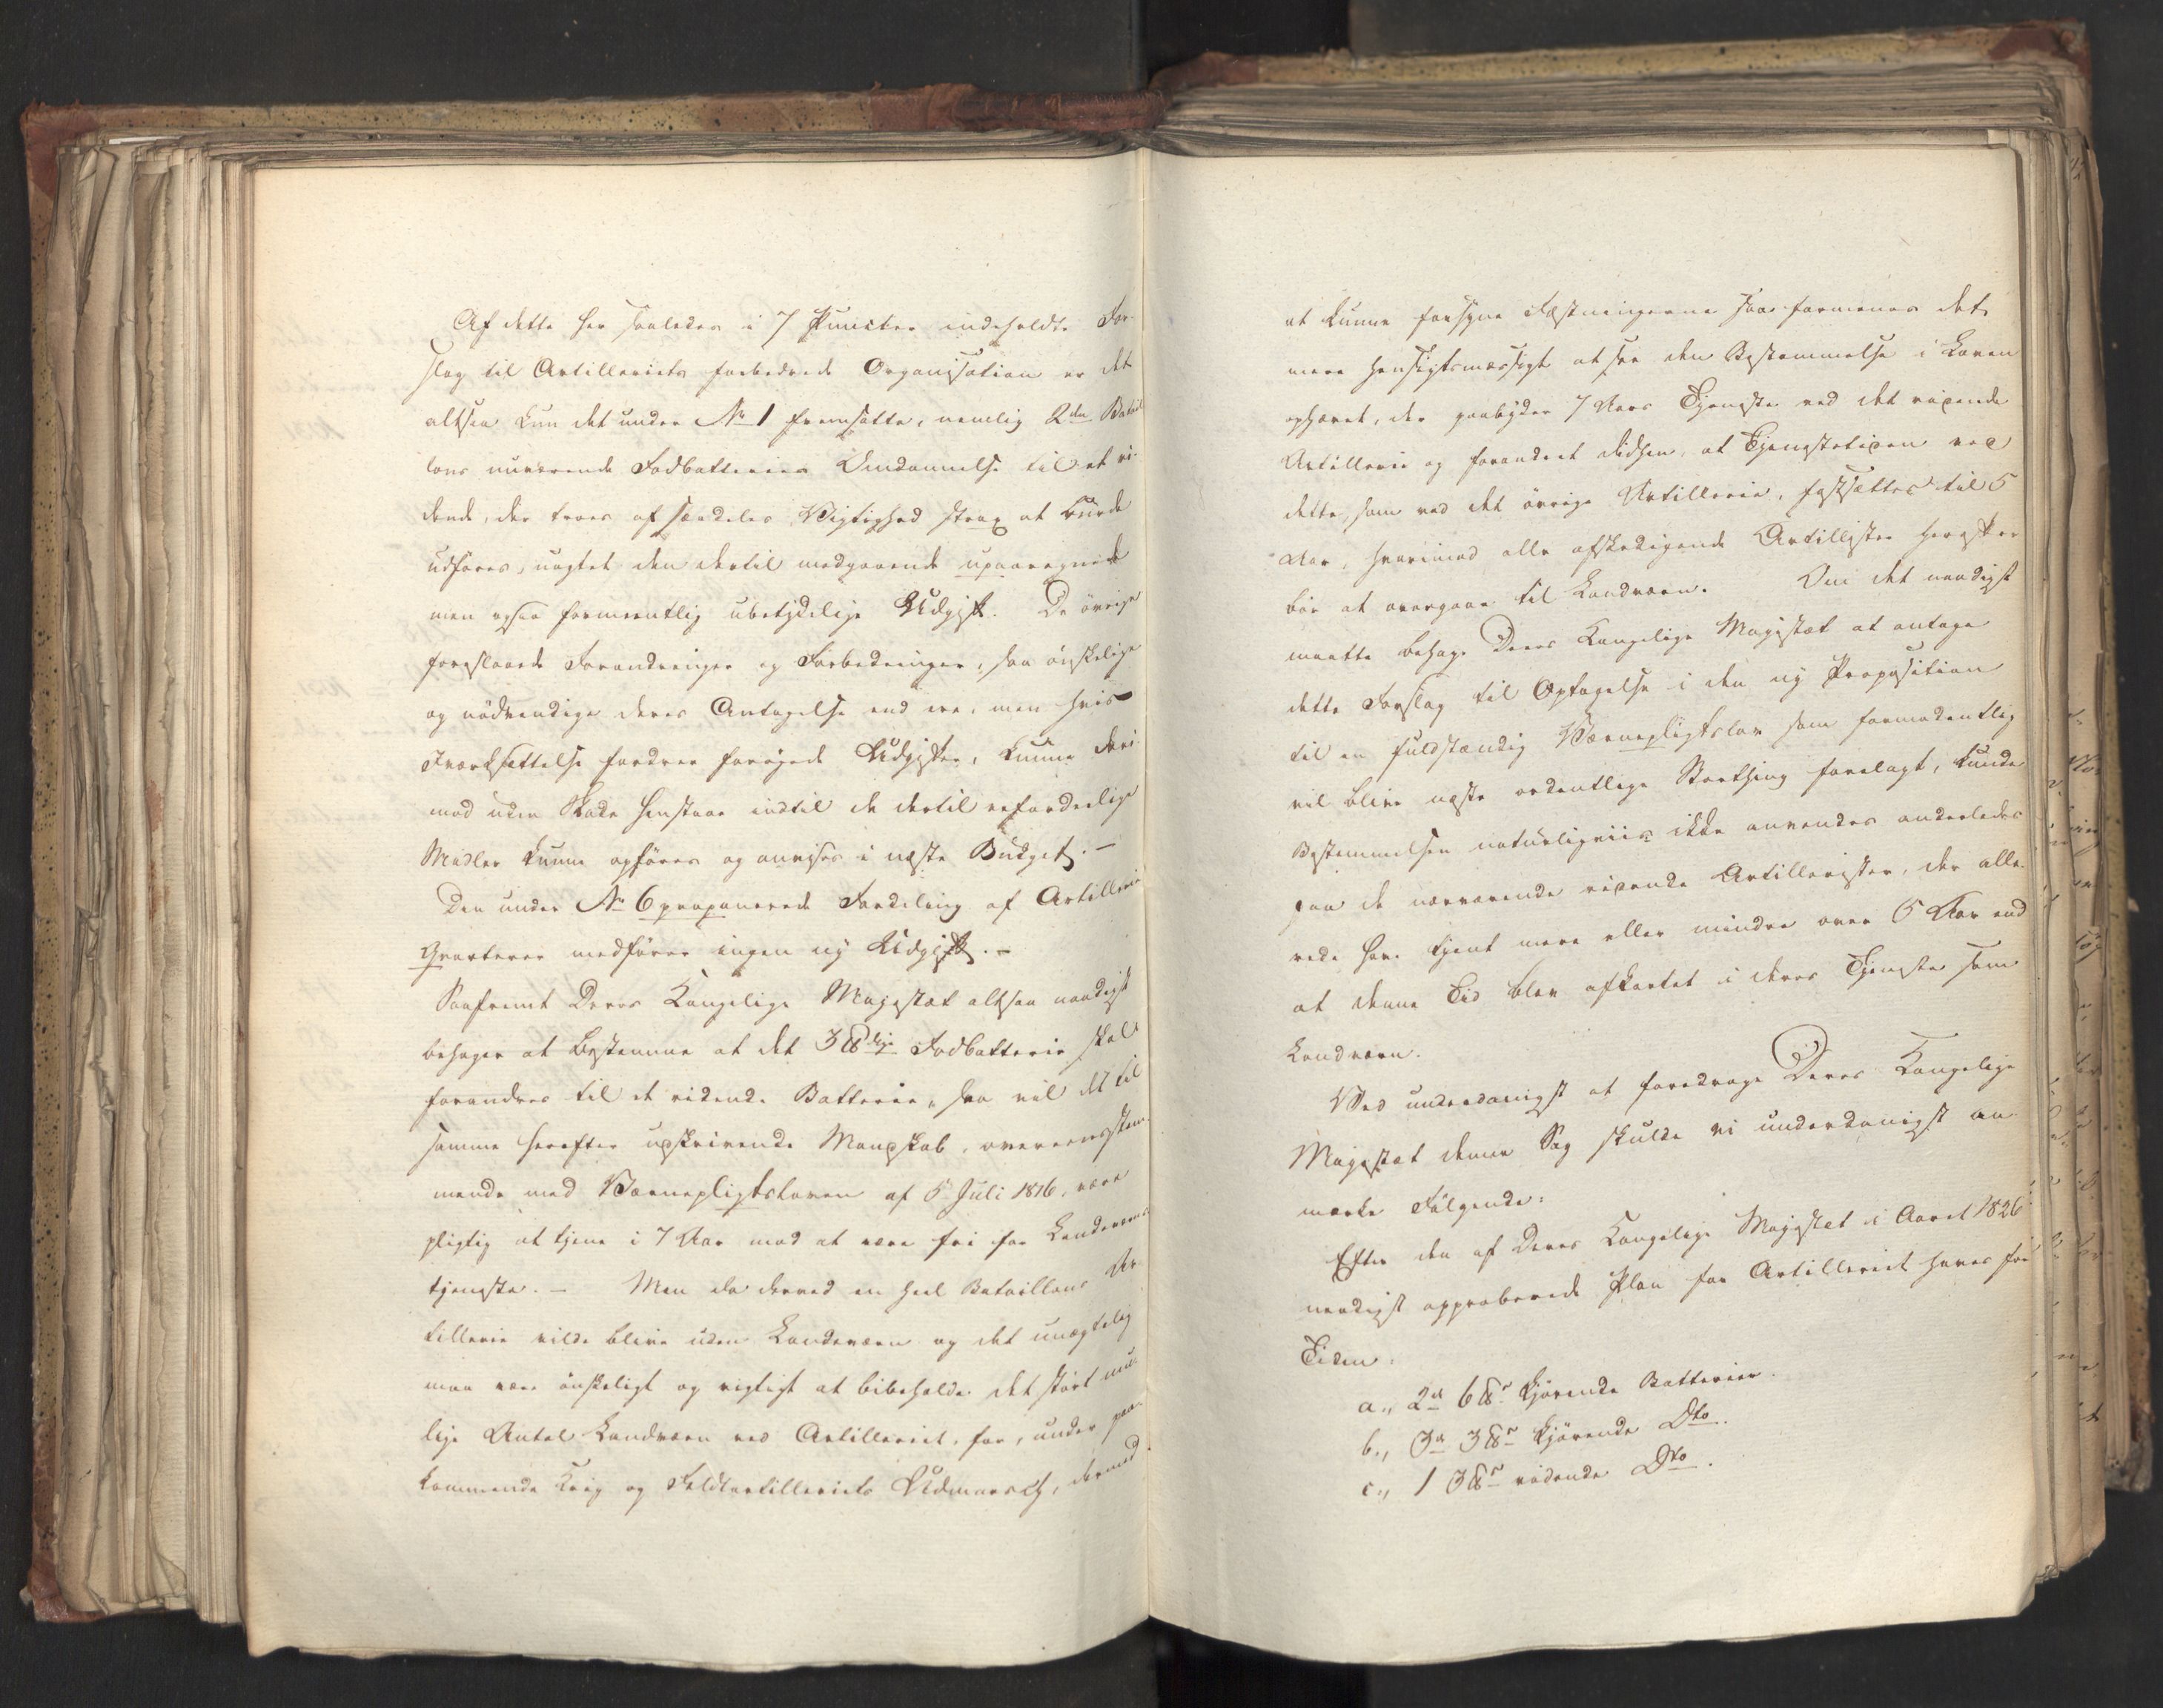 Af dette her saaledes i 7 Puncter indeholdte For-
slag til Artilleriets forbedrede Organisation er det
altsaa kun det under No 1 fremsatte, nemlig 2den Batail
lons nuværende Fodbatteries Omdannelse til et ri-
dende, der troes af særdeles Vigtighed strax at burde
udføres, uagtet den dertil medgaaende upaaregnede
men ogsaa formeentlig ubetydelige Udgift. De øvrige
foreslaaede Forandringer og Forbedringer, saa ønskelige
og nødvendige deres Antagelse end ere, men hvis
Iværksættelse fordrer forøgede Udgifter, kunne deri-
mod uden Skade henstaae indtil de dertil erforderlige
Midler kunne opføres og anvises i næste Budget. -
Den under No 6 proponerede Fordeling af Artillerie
Qvarterer medfører ingen ny Udgift. -
Saafremt Deres Kongelige Majestæt altsaa naadigst
behager at bestemme at det 3 ℔dige Fodbatterie skal
forandres til et ridende Batterie, saa vil det til
samme herefter udskrivende Mandskab, overeensstem-
mende med Værnepligtsloven af 5 Juli 1816, være
pligtig at tjene i 7 Aar mod at være fri for Landeværns
tjeneste. - Men da derved en heel Bataillons Ar-
tillerie vilde blive uden Landeværn og det unægtelig
maa være ønskeligt og vigtigt at bibeholde det størst mu-
lige Antal Landværn ved Artilleriet, for, under paa-
kommende Krig og Feldtartilleriets Udmarsch, dermed
at kunne forsyne Fæstningerne saa formenes det
mere hensigtsmæssigt at see den Bestemmelse i Loven
ophævet, der paabyder 7 Aars Tjeneste ved det ridende
Artillerie og forandret didhen, at Tjenestetiden ved
dette, som ved det øvrige Artillerie, fastsættes til 5
Aar, hvorimod alle afskedigende Artillister herefter
bør at overgaae til Landværn. Om det naadigst
maatte behage Deres Kongelige Majestæt at antage
dette Forslag til Optagelse i den ny Proposition
til en fuldstændig Værnepligtslov som formodentlig
vil blive næste ordentlige Storthing forelagt, kunde
Bestemmelsen naturligviis ikke anvendes anderledes
paa de nærværende ridende Artillerister, der alle-
rede have tjent mere eller mindre over 5 Aar end
at denne Tid blev afkortet i deres Tjeneste som
Landværn.
Ved underdanigst at foredrage Deres Kongelige
Majestæt denne Sag skulde vi underdanigst an-
mærke Følgende:
Efter den af Deres Kongelige Majestæt i Aaret 1826
naadigst approberede Plan for Artilleriet haves for
Tiden:
a., 2de 6 ℔s kjørende Batterier.
b., 3de 3 ℔s kjørende Dto.
c., 1 3 ℔s ridende Dto.